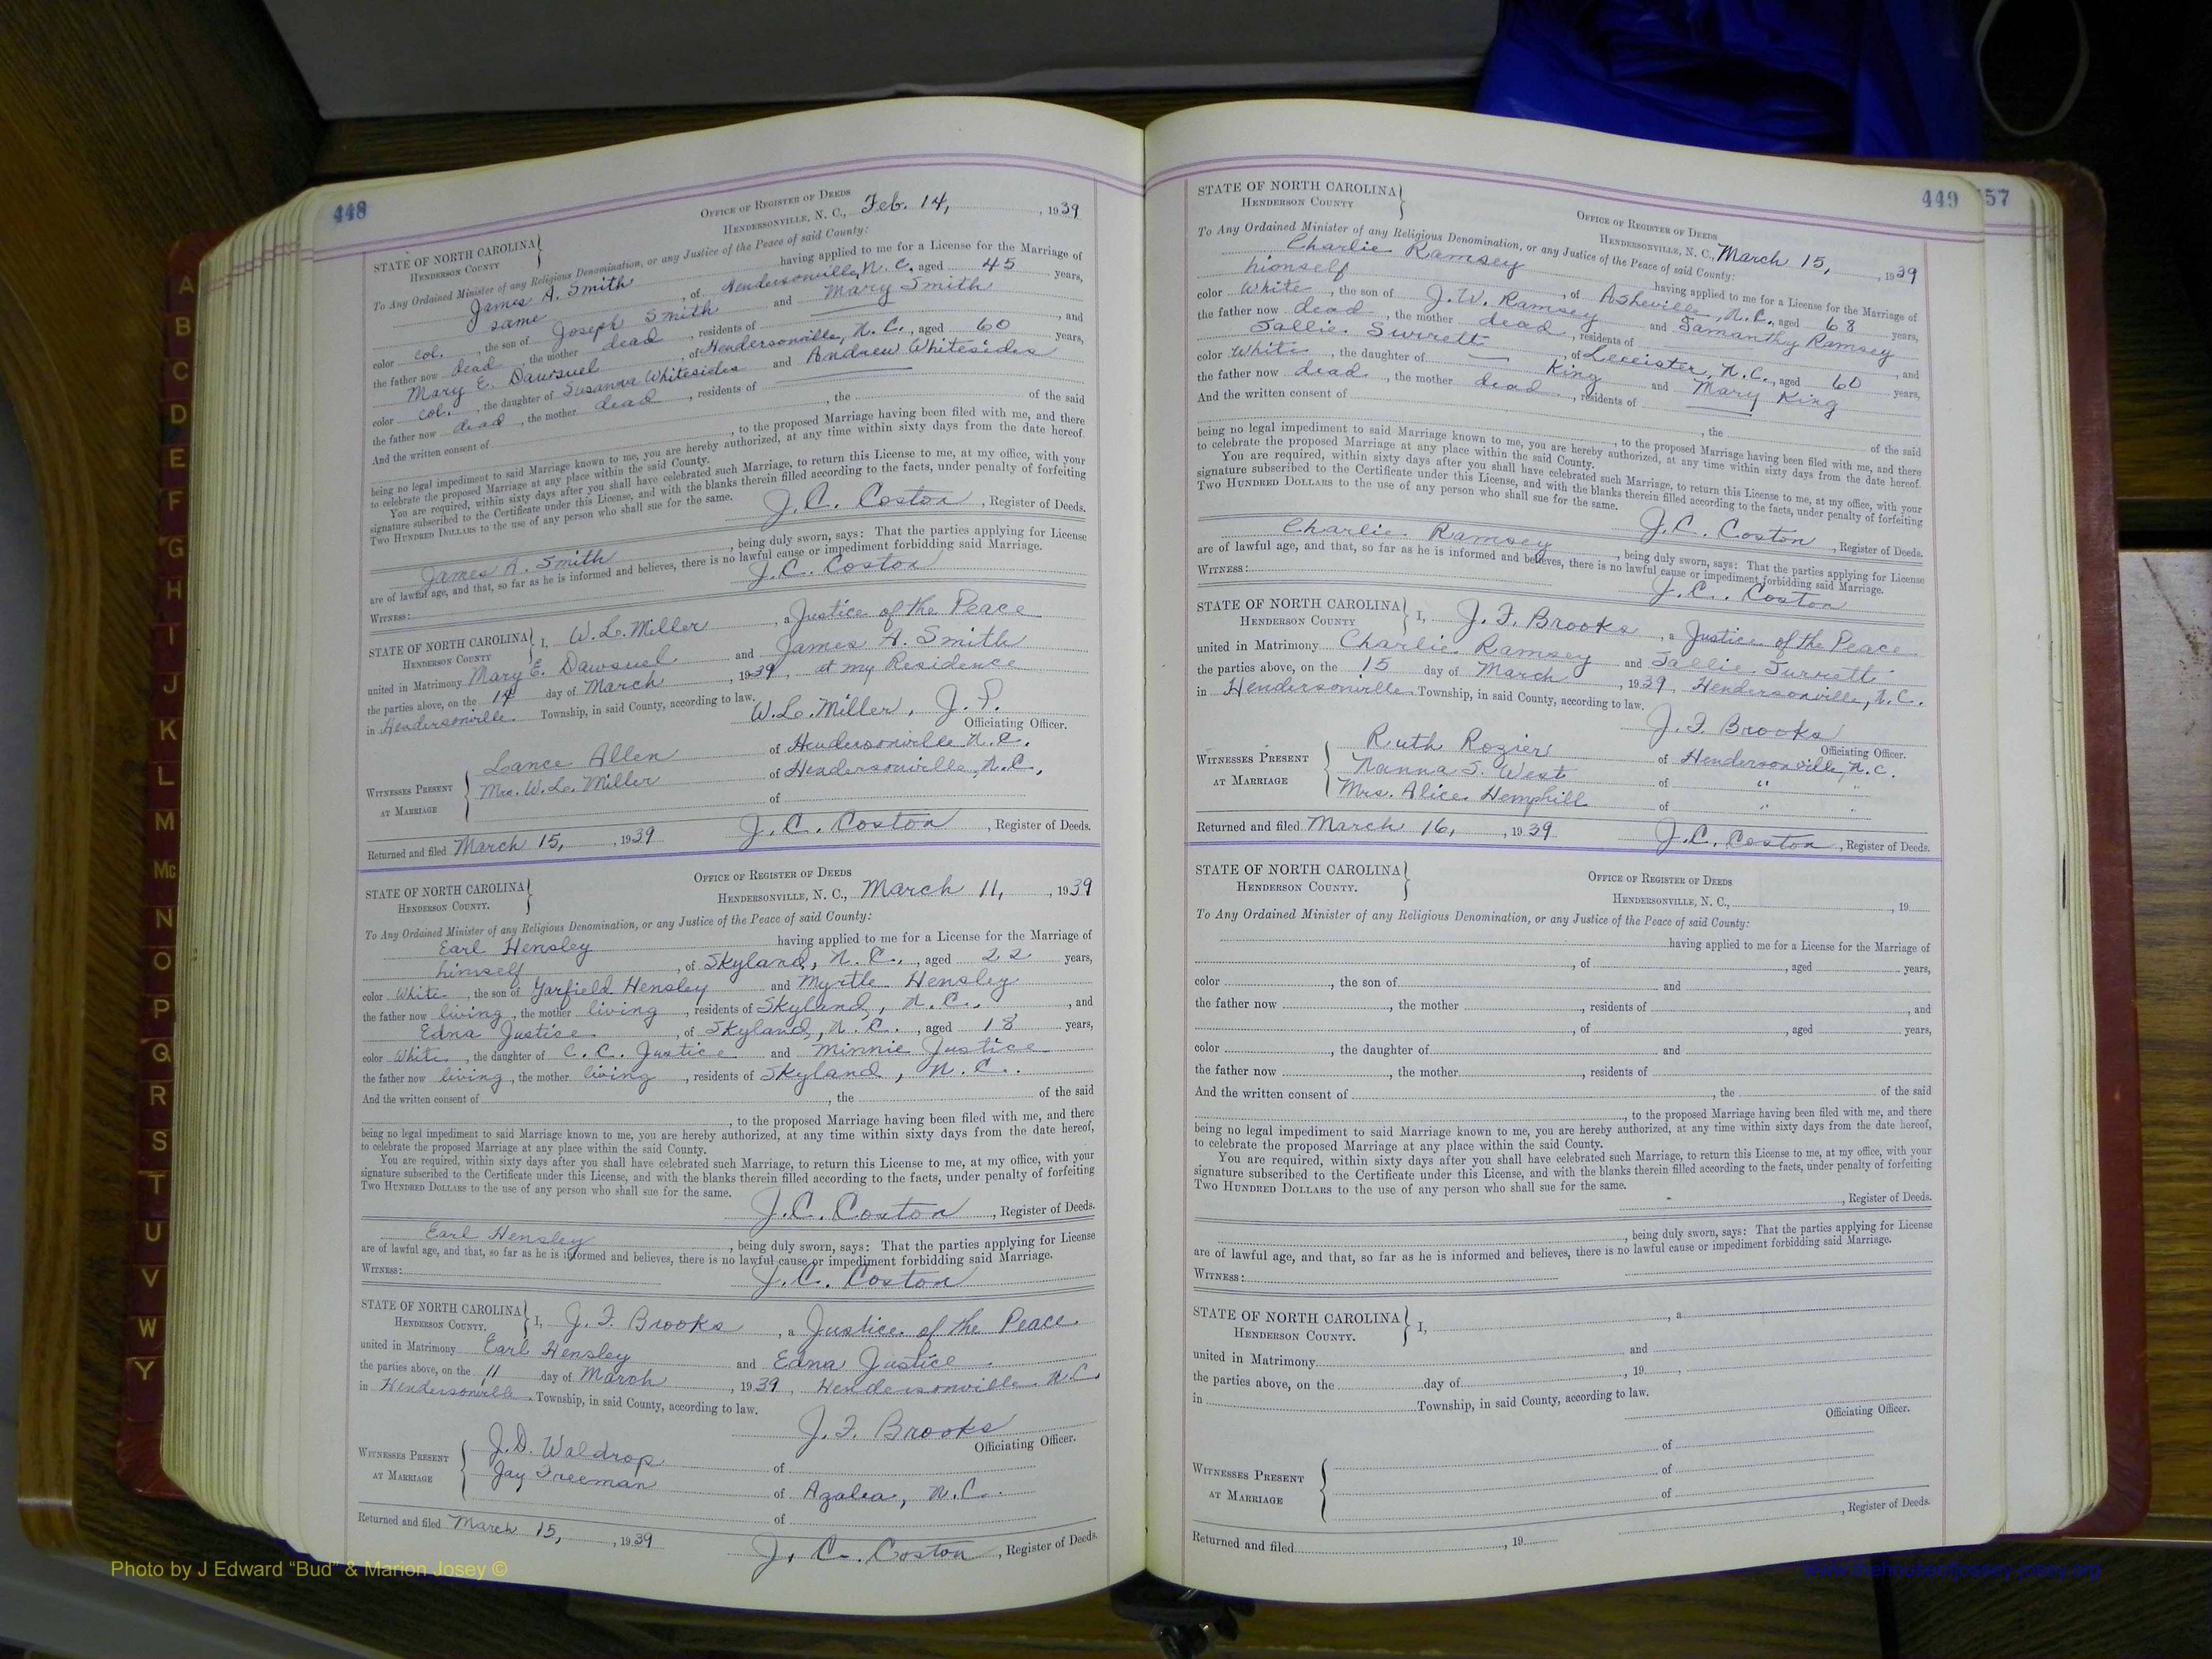 448
OFFICE OF REGISTER OF DEEDS
HENDERSONVILLE, N. C., Feb. 14, , 1939
STATE OF NORTH CAROLINA
HENDERSON COUNTY
To Any Ordained Minister of any Religious Denomination, or any Justice of the Peace of said County:
James A. Smith having applied to me for a License for the Marriage of
same , of Hendersonville, N. C. aged 45 years,
color col. , the son of Joseph Smith and Mary Smith
the father now dead , the mother dead , residents of , and
Mary E. Dawsuel , of Hendersonville, N. C. , aged 60 years,
color col. , the daughter of Susanna Whitesides and Andrew Whitesides
the father now dead , the mother dead , residents of
And the written consent of , the of the said
, to the proposed Marriage having been filed with me, and there
being no legal impediment to said Marriage known to me, you are hereby authorized, at any time within sixty days from the date hereof
to celebrate the proposed Marriage at any place within the said County.
You are required, within sixty days after you shall have celebrated such Marriage, to return this License to me, at my office, with your
signature subscribed to the Certificate under this License, and with the blanks therein filled according to the facts, under penalty of forfeiting
TWO HUNDRED DOLLARS to the use of any person who shall sue for the same.
J. C. Coston , Register of Deeds.
James A. Smith , being duly sworn, says: That the parties applying for License
are of lawful age, and that, so far as he is informed and believes, there is no lawful cause or impediment forbidding said Marriage.
WITNESS: J. C. Coston
STATE OF NORTH CAROLINA
HENDERSON COUNTY
I, W. L. Miller , a Justice of the Peace
united in Matrimony Mary E. Dawsuel and James A. Smith
the parties above, on the 14 day of March , 1939, at my Residence
in Hendersonville Township, in said County, according to law.
W. L. Miller, J. P.
Officiating Officer.
WITNESSES PRESENT
AT MARRIAGE
Lance Allen of Hendersonville N. C.
Mrs. W. L. Miller of Hendersonville, N. C.,
of
Returned and filed March 15, , 1939 J. C. Coston , Register of Deeds.
STATE OF NORTH CAROLINA
HENDERSON COUNTY.
OFFICE OF REGISTER OF DEEDS
HENDERSONVILLE, N. C., March 11, , 1939
To Any Ordained Minister of any Religious Denomination, or any Justice of the Peace of said County:
Earl Hensley having applied to me for a License for the Marriage of
himself , of Skyland, N. C. , aged 22 years,
color White , the son of Garfield Hensley and Myrtle Hensley
the father now living , the mother living , residents of Skyland, N. C. , and
Edna Justice , of Skyland, N. C. , aged 18 years,
color White , the daughter of C. C. Justice and Minnie Justice
the father now living , the mother living , residents of Skyland, N. C.
And the written consent of , the of the said
, to the proposed Marriage having been filed with me, and there
being no legal impediment to said Marriage known to me, you are hereby authorized, at any time within sixty days from the date hereof,
to celebrate the proposed Marriage at any place within the said County.
You are required, within sixty days after you shall have celebrated such Marriage, to return this License to me, at my office, with your
signature subscribed to the Certificate under this License, and with the blanks therein filled according to the facts, under penalty of forfeiting
TWO HUNDRED DOLLARS to the use of any person who shall sue for the same.
J. C. Coston , Register of Deeds.
Earl Hensley , being duly sworn, says: That the parties applying for License
are of lawful age, and that, so far as he is informed and believes, there is no lawful cause or impediment forbidding said Marriage.
WITNESS: J. C. Coston
STATE OF NORTH CAROLINA
HENDERSON COUNTY.
I, J. F. Brooks , a Justice of the Peace
united in Matrimony Earl Hensley and Edna Justice
the parties above, on the 11 day of March , 1939, Hendersonville N. C.
in Hendersonville Township, in said County, according to law.
J. F. Brooks
Officiating Officer.
WITNESSES PRESENT
AT MARRIAGE
J. D. Waldrop of
Jay Freeman of Azalea, N. C.
of
Returned and filed March 15, , 1939 J. C. Coston , Register of Deeds.
449
57
STATE OF NORTH CAROLINA
HENDERSON COUNTY
OFFICE OF REGISTER OF DEEDS
HENDERSONVILLE, N. C., March 15, , 1939
To Any Ordained Minister of any Religious Denomination, or any Justice of the Peace of said County:
Charlie Ramsey having applied to me for a License for the Marriage of
himself , of Asheville, N. C., aged 68 years,
color White , the son of J. W. Ramsey and Samanthy Ramsey
the father now dead , the mother dead , residents of , and
Sallie Surrett , of Leceister, N. C., aged 60 years,
color White , the daughter of — King and Mary King
the father now dead , the mother dead , residents of
And the written consent of , the of the said
, to the proposed Marriage having been filed with me, and there
being no legal impediment to said Marriage known to me, you are hereby authorized, at any time within sixty days from the date hereof.
to celebrate the proposed Marriage at any place within the said County.
You are required, within sixty days after you shall have celebrated such Marriage, to return this License to me, at my office, with your
signature subscribed to the Certificate under this License, and with the blanks therein filled according to the facts, under penalty of forfeiting
TWO HUNDRED DOLLARS to the use of any person who shall sue for the same.
J. C. Coston , Register of Deeds.
Charlie Ramsey , being duly sworn, says: That the parties applying for License
are of lawful age, and that, so far as he is informed and believes, there is no lawful cause or impediment forbidding said Marriage.
WITNESS: J. C. Coston
STATE OF NORTH CAROLINA
HENDERSON COUNTY
I, J. F. Brooks , a Justice of the Peace
united in Matrimony Charlie Ramsey and Sallie Surrett
the parties above, on the 15 day of March , 1939, Hendersonville, N. C.
in Hendersonville Township, in said County, according to law.
J. F. Brooks
Officiating Officer.
WITNESSES PRESENT
AT MARRIAGE
Ruth Rozier of Hendersonville, N. C.
Nanna S. West of " "
Mrs. Alice Hemphill of " "
Returned and filed March 16, , 1939 J. C. Coston , Register of Deeds.
STATE OF NORTH CAROLINA
HENDERSON COUNTY.
OFFICE OF REGISTER OF DEEDS
HENDERSONVILLE, N. C., , 19
To Any Ordained Minister of any Religious Denomination, or any Justice of the Peace of said County:
having applied to me for a License for the Marriage of
, of , aged years,
color , the son of and
the father now , the mother , residents of , and
, of , aged years,
color , the daughter of and
the father now , the mother , residents of
And the written consent of , the of the said
, to the proposed Marriage having been filed with me, and there
being no legal impediment to said Marriage known to me, you are hereby authorized, at any time within sixty days from the date hereof,
to celebrate the proposed Marriage at any place within the said County.
You are required, within sixty days after you shall have celebrated such Marriage, to return this License to me, at my office, with your
signature subscribed to the Certificate under this License, and with the blanks therein filled according to the facts, under penalty of forfeiting
TWO HUNDRED DOLLARS to the use of any person who shall sue for the same.
, Register of Deeds.
, being duly sworn, says: That the parties applying for License
are of lawful age, and that, so far as he is informed and believes, there is no lawful cause or impediment forbidding said Marriage.
WITNESS:
STATE OF NORTH CAROLINA
HENDERSON COUNTY.
I, , a
united in Matrimony and
the parties above, on the day of , 19 ,
in Township, in said County, according to law.
Officiating Officer.
WITNESSES PRESENT
AT MARRIAGE
of
of
of
, Register of Deeds.
Returned and filed , 19
A
B
C
D
E
F
G
H
I
J
K
L
M
Mc
N
O
P
Q
R
S
T
U
V
W
Y
Photo by J Edward “Bud” & Marion Josey ©
www.thehouseofjossey-josey.org